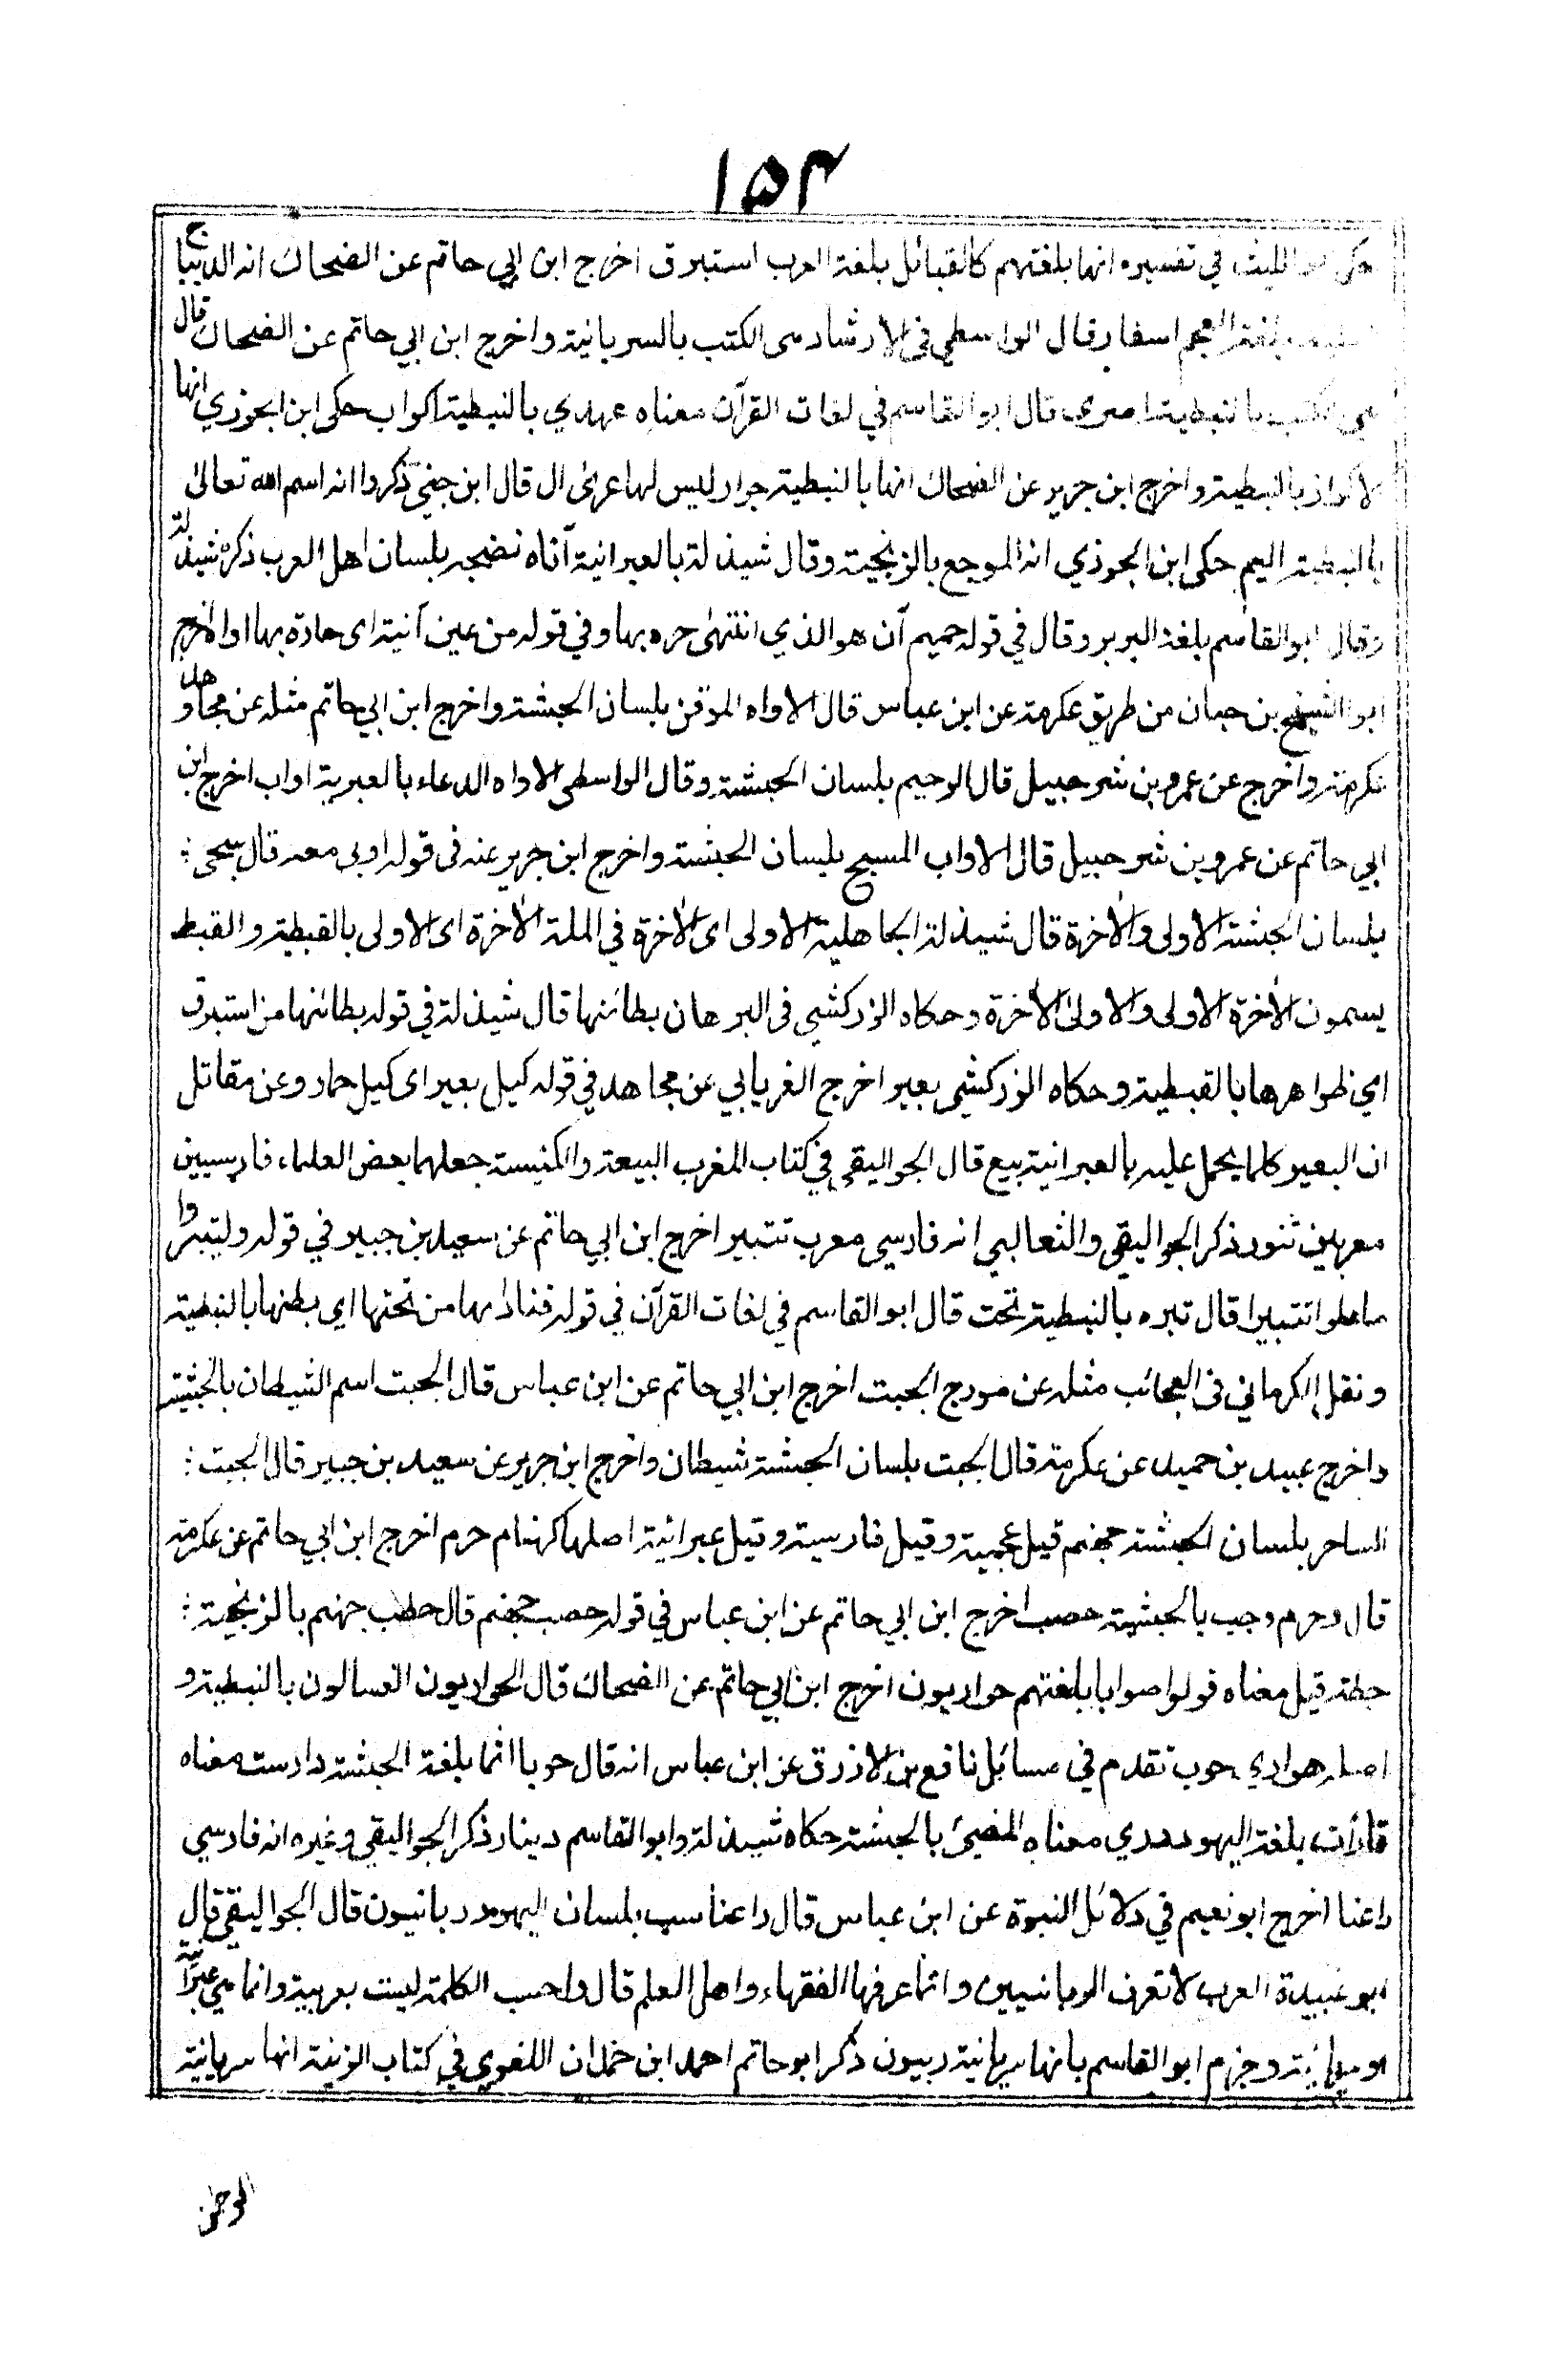 ۱۵۴
حكى ابو الليث في تفسيره انها بلغتهم كالقبائل بلغة العرب استبرق اخرج ابن ابي حاتم عن الضحاك انه الديباج
بلغة العجم اسفار قال الواسطي في الارشاد هى الكتب بالسريانية واخرج ابن ابي حاتم عن الضحاك قال
هي الكتب بالنبطية اصرى قال ابو القاسم في لغات القرآن معناه عهدي بالنبطية اكواب حكى ابن الجوزي انها
الاكواز بالنبطية واخرج ابن جرير عن الضحاك انها بالنبطية جرار ليس لها عرى ال قال ابن جني ذكروا انه اسم الله تعالى
بالنبطية اليم حكى ابن الجوزي انه الموجع بالزنجية وقال شيذلة بالعبرانية آناه نضجه بلسان اهل العرب ذكره شيذلة
وقال ابو القاسم بلغة البربر وقال في قوله حميم آن هو الذي انتهى حره بها وفي قوله من عين آنية اى حارة بها اواه اخرج
ابو الشيخ بن حبان من طريق عكرمة عن ابن عباس قال الاواه الموقن بلسان الحبشة واخرج ابن ابي حاتم مثله عن مجاهد و
عكرمة واخرج عن عمرو بن شرحبيل قال الرحيم بلسان الحبشة وقال الواسطى الاواه الدعاء بالعبرية اواب اخرج ابن
ابي حاتم عن عمرو بن شرحبيل قال الاواب المسبح بلسان الحبشة واخرج ابن جرير عنه فى قوله اوبى معه قال سبحى :
بلسان الحبشة الاولى والآخرة قال شيذلة الجاهلية الاولى اى الآخرة في الملة الآخرة اى الاولى بالقبطية والقبط
يسمون الآخرة الاولى والاولى الآخرة وحكاه الزركشي فى البرهان بطائنها قال شيذلة في قوله بطائنها من استبرق
اي ظواهرها بالقبطية وحكاه الزركشي بعير اخرج الفريابي عن مجاهد في قوله كيل بعير اى كيل حمار وعن مقاتل
ان البعير كلما يحمل عليه بالعبرانية بيع قال الجواليقي في كتاب المغرب البيعة والكنيسة جعلهما بعض العلماء فارسيين
معربين تنور ذكر الجواليقي والثعالبي انه فارسي معرب تتبير اخرج ابن ابي حاتم عن سعيد بن جبير في قوله وليتبروا
ما علوا تتبيرا قال تبره بالنبطية تحت قال ابو القاسم في لغات القرآن في قوله فناداها من تحتها اي بطنها بالنبطية
ونقل الكرماني فى العجائب مثله عن مورج الجبت اخرج ابن ابي حاتم عن ابن عباس قال الجبت اسم الشيطان بالحبشية
واخرج عبيد بن حميد عن عكرمة قال الجبت بلسان الحبشة شيطان واخرج ابن جرير عن سعيد بن جبير قال الجبت :
الساحر بلسان الحبشة جهنم قيل عجمية وقيل فارسية وقيل عبرانية اصلها كهنام حرم اخرج ابن ابي حاتم عن عكرمة
قال وحرم وجب بالحبشية حصب اخرج ابن ابي حاتم عن ابن عباس في قوله حصب جهنم قال حطب جهنم بالزنجية :
حطة قيل معناه قولوا صوابا بلغتهم حواريون اخرج ابن ابي حاتم عن الضحاك قال الحواريون الغسالون بالنبطية و
اصله هواري حوب تقدم في مسائل نافع بن الازرق عن ابن عباس انه قال حوبا اثما بلغة الحبشة دارست معناه
قارأت بلغة اليهود دري معناه المضئ بالحبشة حكاه شيذلة وابو القاسم دينار ذكر الجواليقي وغيره انه فارسي
راعنا اخرج ابو نعيم في دلائل النبوة عن ابن عباس قال راعنا سب بلسان اليهود ربانيون قال الجواليقي قال
ابو عبيدة العرب لا تعرف الربانيين وانما عرفها الفقهاء واهل العلم قال واحسب الكلمة ليست بعربية وانما هي عبرانية
او سريانية وجزم ابو القاسم بانها سريانية ربيون ذكر ابو حاتم احمد ابن حمدان اللغوي في كتاب الزينة انها سريانية
الرحمن